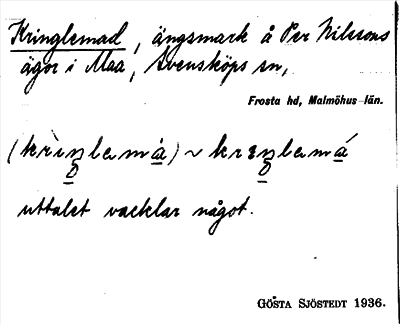 Kringlemad, ängsmark å Per Nilssons
ägor i Maa, Svensköps sn,
Frosta hd, Malmöhus län.
(kriŋlema) ~ krɛŋlema
uttalet vacklar något.
GÖSTA SJÖSTEDT 1936.